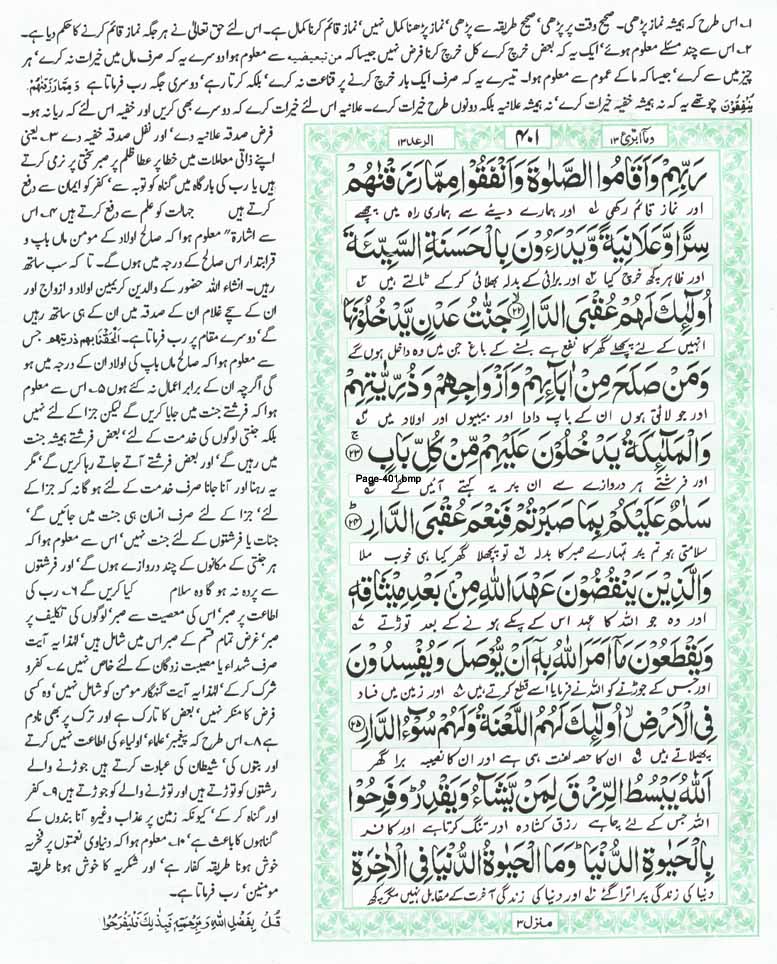 ۱۔ اس طرح کہ ہمیشہ نماز پڑھی۔ صحیح وقت پر پڑھی، صحیح طریقہ سے پڑھی، نماز پڑھنا کمال نہیں، نماز قائم کرنا کمال ہے۔ اس لئے حق تعالیٰ نے ہر جگہ نماز قائم کرنے کا حکم دیا ہے۔
۲۔ اس سے چند مسئلے معلوم ہوئے، ایک یہ کہ بعض خرچ کرے کل خرچ کرنا فرض نہیں جیسا کہ من تبعیضیہ سے معلوم ہوا دوسرے یہ کہ صرف مال میں خیرات نہ کرے، ہر
چیز میں سے کرے، جیسا کہ ما کے عموم سے معلوم ہوا۔ تیسرے یہ کہ صرف ایک بار خرچ کرنے پر قناعت نہ کرے، بلکہ کرتا رہے، دوسری جگہ رب فرماتا ہے وَمِمَّا رَزَقْنٰهُمْ
يُنْفِقُوْنَ چوتھے یہ کہ نہ ہمیشہ خفیہ خیرات کرے، نہ ہمیشہ علانیہ بلکہ دونوں طرح خیرات کرے۔ علانیہ اس لئے خیرات کرے کہ دوسرے بھی کریں اور خفیہ اس لئے کہ ریا نہ ہو۔
وما ابرئ ۱۳
۴۰۱
الرعد ۱۳
رَبِّهِمْ وَاَقَامُوا الصَّلٰوةَ وَاَنْفَقُوْا مِمَّا رَزَقْنٰهُمْ
اور نماز قائم رکھی ۱ اور ہمارے دیئے سے ہماری راہ میں چھپے
سِرًّا وَّعَلَانِيَةً وَّيَدْرَءُوْنَ بِالْحَسَنَةِ السَّيِّئَةَ
اور ظاہر کچھ خرچ کیا ۲ اور برائی کے بدلہ بھلائی کرکے ٹالتے ہیں ۳
اُولٰٓئِكَ لَهُمْ عُقْبَى الدَّارِ ﴿۲۲﴾ جَنّٰتُ عَدْنٍ يَّدْخُلُوْنَهَا
انہیں کے لئے پچھلے گھر کا نفع ہے بسنے کے باغ جن میں وہ داخل ہوں گے
وَمَنْ صَلَحَ مِنْ اٰبَآئِهِمْ وَاَزْوَاجِهِمْ وَذُرِّيّٰتِهِمْ
اور جو لائق ہوں ان کے باپ دادا اور بیبیوں اور اولاد میں ۴
وَالْمَلٰٓئِكَةُ يَدْخُلُوْنَ عَلَيْهِمْ مِّنْ كُلِّ بَابٍ ﴿۲۳﴾
Page-401.bmp
اور فرشتے ہر دروازے سے ان پر یہ کہتے آئیں گے ۵
سَلٰمٌ عَلَيْكُمْ بِمَا صَبَرْتُمْ فَنِعْمَ عُقْبَى الدَّارِ ﴿۲۴﴾
سلامتی ہو تم پر تمہارے صبر کا بدلہ ۶ تو پچھلا گھر کیا ہی خوب ملا
وَالَّذِيْنَ يَنْقُضُوْنَ عَهْدَ اللّٰهِ مِنْ بَعْدِ مِيْثَاقِهٖ
اور وہ جو اللہ کا عہد اس کے پکے ہونے کے بعد توڑتے ۷
وَيَقْطَعُوْنَ مَآ اَمَرَ اللّٰهُ بِهٖٓ اَنْ يُّوْصَلَ وَيُفْسِدُوْنَ
اور جس کے جوڑنے کو اللہ نے فرمایا اسے قطع کرتے ہیں ۸ اور زمین میں فساد
فِى الْاَرْضِ اُولٰٓئِكَ لَهُمُ اللَّعْنَةُ وَلَهُمْ سُوْٓءُ الدَّارِ ﴿۲۵﴾
پھیلاتے ہیں ۹ ان کا حصہ لعنت ہی ہے اور ان کا نصیبہ برا گھر
اَللّٰهُ يَبْسُطُ الرِّزْقَ لِمَنْ يَّشَآءُ وَيَقْدِرُ وَفَرِحُوْا
اللہ جس کے لئے چاہے رزق کشادہ اور تنگ کرتا ہے اور کافر
بِالْحَيٰوةِ الدُّنْيَا وَمَا الْحَيٰوةُ الدُّنْيَا فِى الْاٰخِرَةِ
دنیا کی زندگی پر اترا گئے ۱۰ اور دنیا کی زندگی آخرت کے مقابل نہیں مگر کچھ
منزل ۳
فرض صدقہ علانیہ دے، اور نفل صدقہ خفیہ دے ۳۔ یعنی
اپنے ذاتی معاملات میں خطا پر عطا ظلم پر صبر سختی پر نرمی کرتے
ہیں یا رب کی بارگاہ میں گناہ کو توبہ سے، کفر کو ایمان سے دفع
کرتے ہیں جہالت کو علم سے دفع کرتے ہیں ۴۔ اس
سے اشارۃً معلوم ہوا کہ صالح اولاد کے مومن ماں باپ و
قرابتدار اس صالح کے درجہ میں ہوں گے۔ تا کہ سب ساتھ
رہیں۔ انشاء اللہ حضور کے والدین کریمین اولاد و ازواج اور
ان کے سچے غلام ان کے صدقہ میں ان کے ہی ساتھ رہیں
گے، دوسرے مقام پر رب فرماتا ہے۔ اَلْحَقْنَا بِهِمْ ذُرِّيَّتَهُمْ جس
سے معلوم ہوا کہ صالح ماں باپ کی اولاد ان کے درجہ میں ہو
گی اگرچہ ان کے برابر اعمال نہ کئے ہوں ۵۔ اس سے معلوم
ہوا کہ فرشتے جنت میں جایا کریں گے لیکن جزا کے لئے نہیں
بلکہ جنتی لوگوں کی خدمت کے لئے، بعض فرشتے ہمیشہ جنت
میں رہیں گے، اور بعض فرشتے آتے جاتے رہا کریں گے، مگر
یہ رہنا اور آنا جانا صرف خدمت کے لئے ہو گا نہ کہ جزا کے
لئے، جزا کے لئے صرف انسان ہی جنت میں جائیں گے،
جنات یا فرشتوں کے لئے جنت نہیں، اس سے معلوم ہوا کہ
ہر جنتی کے مکانوں کے چند دروازے ہوں گے، اور فرشتوں
سے پردہ نہ ہو گا وہ سلام کیا کریں گے ۶۔ رب کی
اطاعت پر صبر، اس کی معصیت سے صبر، لوگوں کی تکلیف پر
صبر، غرض تمام قسم کے صبر اس میں شامل ہیں، لہٰذا یہ آیت
صرف شہداء یا مصیبت زدگان کے لئے خاص نہیں ۷۔ کفر و
شرک کر کے، لہٰذا یہ آیت گنہگار مومن کو شامل نہیں، وہ کسی
فرض کا منکر نہیں، بعض کا تارک ہے اور ترک پر بھی نادم
ہے ۸۔ اس طرح کہ پیغمبر، علماء، اولیاء کی اطاعت نہیں کرتے
اور بتوں کی، شیطان کی عبادت کرتے ہیں جوڑنے والے
رشتوں کو توڑتے ہیں اور توڑنے والے کو جوڑتے ہیں ۹۔ کفر
اور گناہ کر کے، کیونکہ زمین پر عذاب وغیرہ آنا بندوں کے
گناہوں کا باعث ہے، ۱۰۔ معلوم ہوا کہ دنیاوی نعمتوں پر فخریہ
خوش ہونا طریقہ کفار ہے، اور شکریہ کا خوش ہونا طریقہ
مومنین، رب فرماتا ہے۔
قُلْ بِفَضْلِ اللّٰهِ وَبِرَحْمَتِهٖ فَبِذٰلِكَ فَلْيَفْرَحُوْا